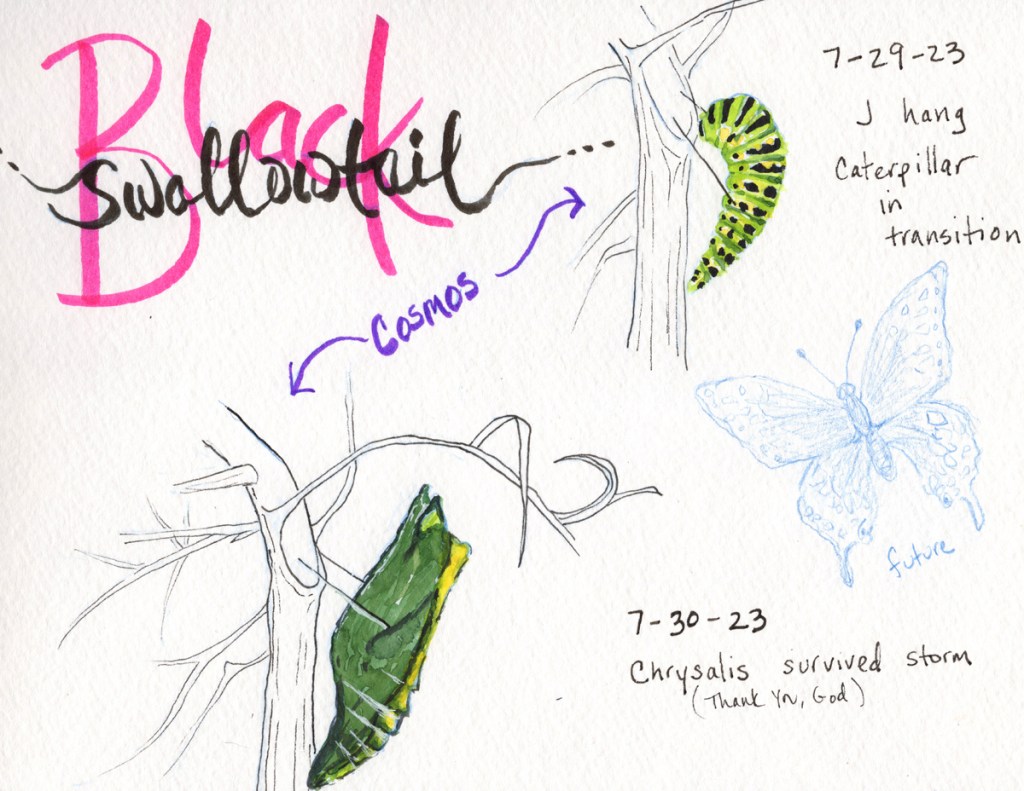 Black
swallowtail
Cosmos
7-29-23
J hang
Caterpillar
in
transition
future
7-30-23
Chrysalis survived storm
(Thank You, God)